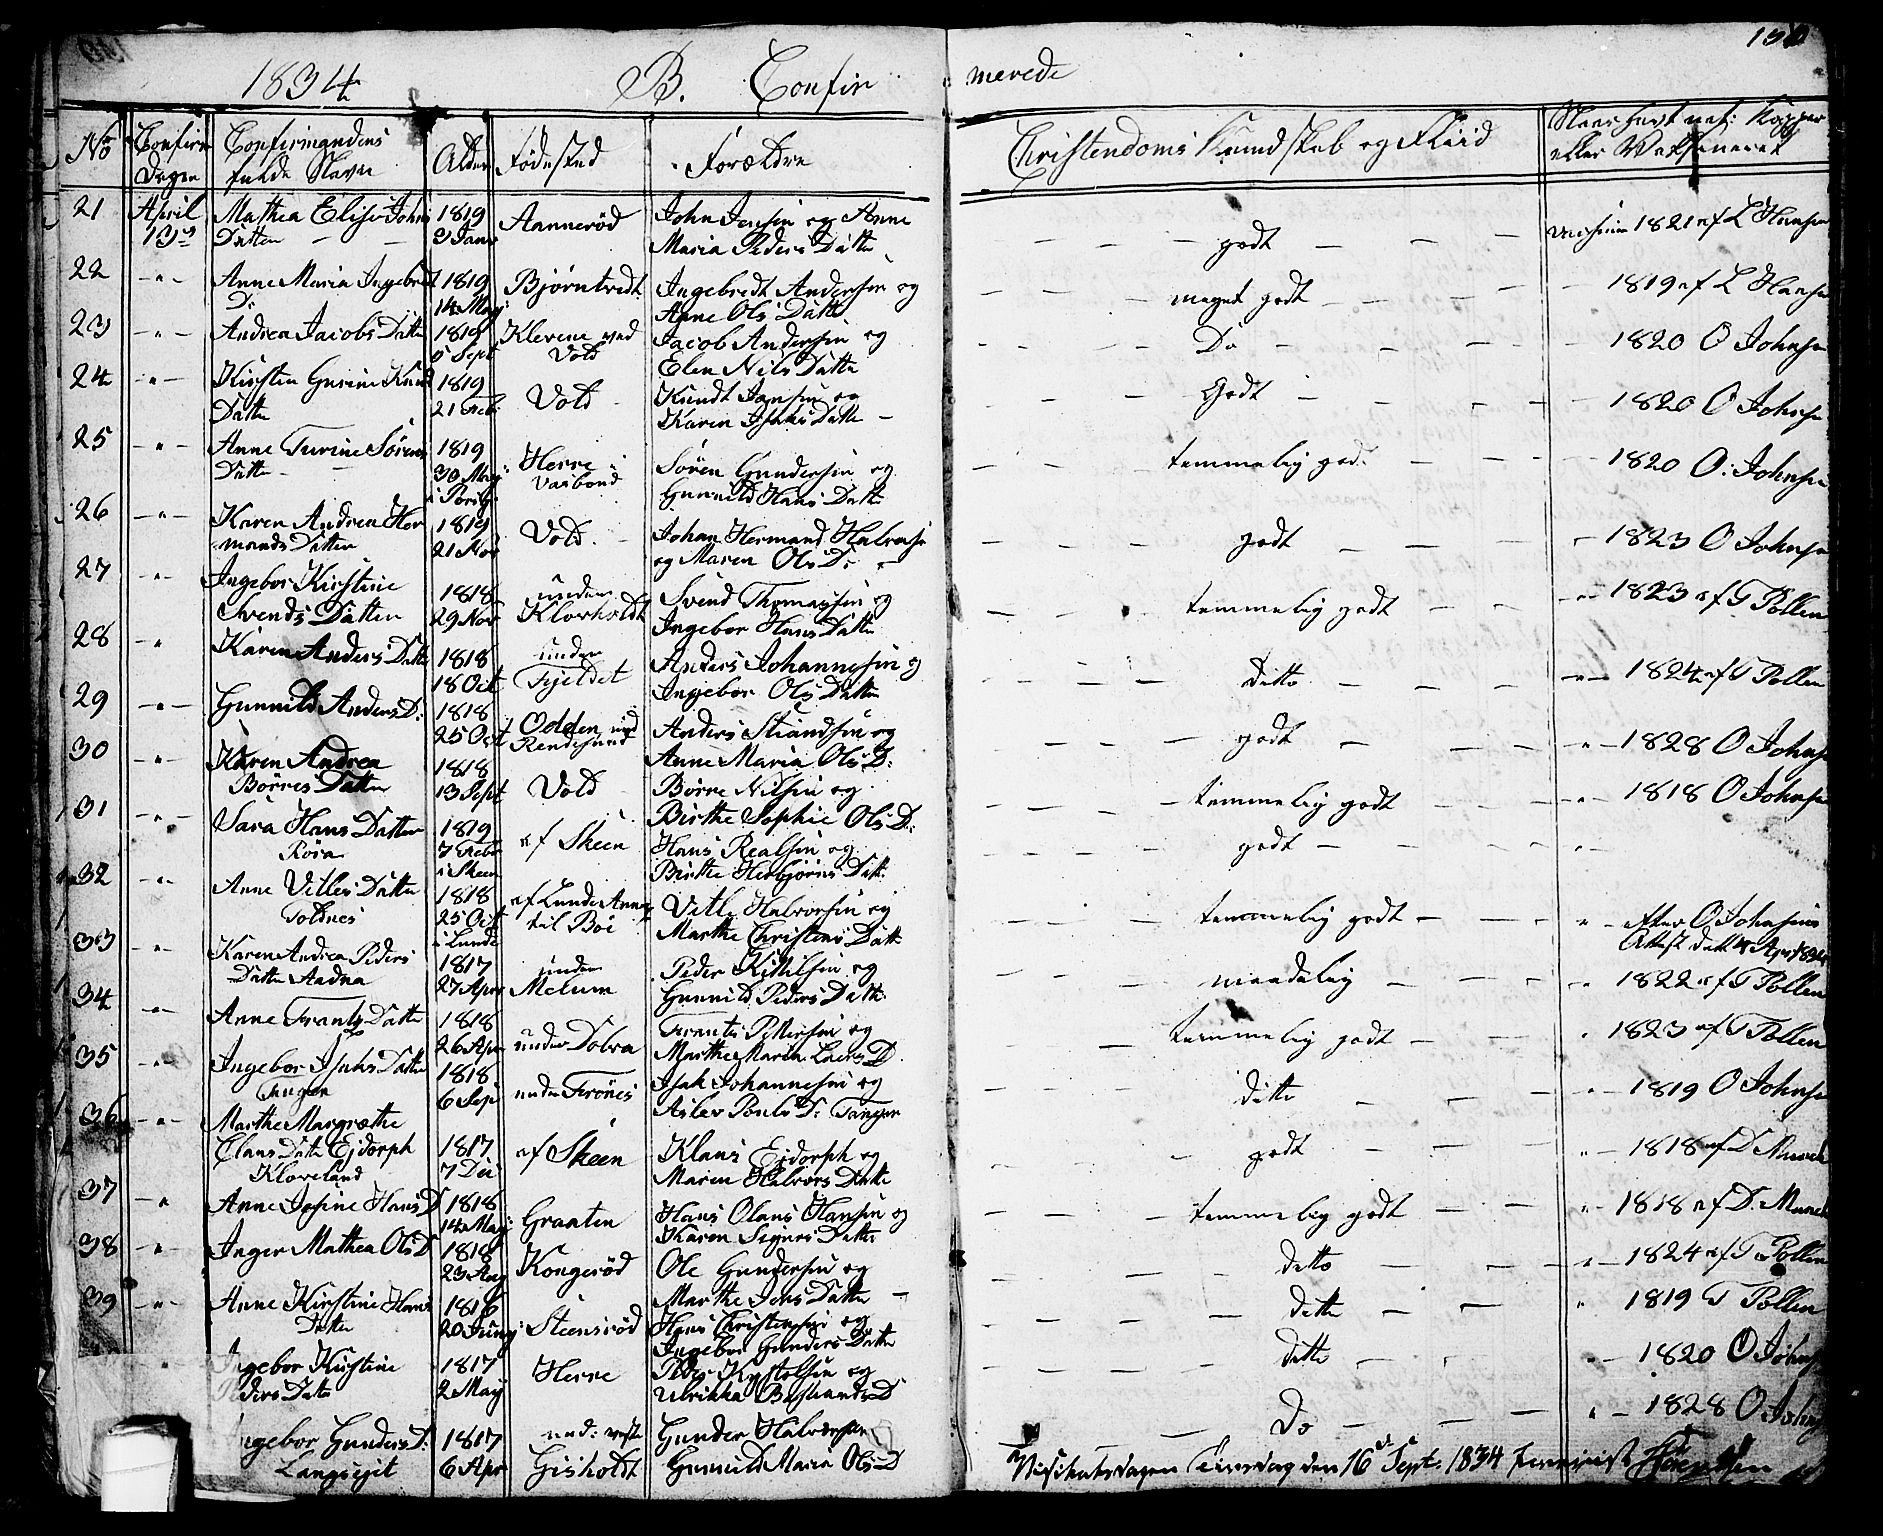 1834 B. Confir merede 130
No Confirm Dagen Confirmandens fulde Navn Alder Fødested Forældre Christendoms Kundskab og Fliid
21 April 13de Mathea Elise Johns Datter 1819 3 Janr Aannerød John Jensen og Anne Maria Peders Datter godt 1821 af L Hansen
22 Anne Maria Ingebredt D: 1819 14 Maj Bjørntvedt Ingebredt Andersen og Anne Ols Datter meget godt 1819 af L Hansen
23 Andrea Jacobs Datter 1819 5 Sept Klevene ved Vold Jacob Andersen og Elen Nils Datter Do 1820 O Johnsen
24 Kirsten Gurine Knud Datter 1819 21 Feb: Vold Knudt Jansen og Karen Isaks Datter Godt 1820 O Johnsen
25 Anne Turine Sørens Datter 1819 30 Maj i Porsg: Herre Søren Gundersen og Gunnild Hans Datter temmelig godt 1820 O: Johnsen
26 Karen Andrea Hermands Datter 1819 21 Nov Vold Johan Hermand Halvorsen og Maren Ols D: godt 1823 O Johnsen
27 Ingebor Kirstine Svends Datter 1818 29 Nov under Klovholdt Svend Thomassen og Ingebor Hans Datter temmelig godt 1823 af T Pollen
28 Karen Anders Datter 1818 18 Oct under Fjeldet Anders Johannesen og Ingebor Ols Datter ditto 1824 af T Pollen
29 Gunnild Anders D: 1818 25 Oct Odden ved Anders Strandsen og Anne Maria Ols D: godt 1828 O Johnsen
30 Karen Andrea Børres Datter 1818 13 Sept Vold Børre Nilsen og Birthe Sophie Ols D: temmelig godt 1818 O Johnsen
31 Sara Hans Datter Røra 1819 7 Febr i Skeen af Skeen Hans Realsen og Birthe Herbjørns Datt: godt
32 Anne Vetles Datter Toldnes 1818 25 Oct i Lunde af Lunde Annex til Bøe Vetle Halvorsen og Marthe Christens Datt temmelig godt efter O Johnsens Attest datt 4 Apr 1834
33 Karen Andrea Peders Datter Aadna 1817 27 Apr under Melum Peder Kittilsen og Gunnild Peders Datt: maadelig 1822 af T Pollen
34 Anne Frants Datter 1818 26 Apr under Dolva Frants Pettersen og Marthe Maria Laers D. temmelig godt 1823 af T Pollen
35 Ingebor Isaks Datter Tangen 1818 6 Sep under Frønes Isak Johannesen og Aslev Pouls D: Tangen ditto 1819 O Johnsen
36 Marthe Margrethe Clans Datt Ejdorph Kloveland 1817 7 De af Skeen Klaus Ejdorph og Maren Halvors Datter godt 1818 af D. Munck
37 Anne Josine Hans D 1818 14 Maj: Graaten Hans Olaus Hansen og Karen Signes Datter temmelig godt 1818 af D. Munck
38 Inger Mathea Ols D 1818 23 Aug Kongerød Ole Gundersen og Marthe Jens Datter detto 1824 af T Pollen
39 Anne Kirstine Hans Datter 1818 20 Junj: Steensrød Hans Christensen og Ingebor Gunders Datter dette 1819 T Pollen
Ingebor Kirstine Peders Datt 1817 2 Maj Herre Peder Kystolsen og Ulrikka Bastians D dette 1820 O Johnsen
Ingebor Gunders D: Langsejet 1817 6 Apr und: vestre Gisholdt Gunder Halvorsen Gunnild Maria Ols D Do 1828 O Johns
Visitatsdagen Tiirsdag den 16de Sept: 1834